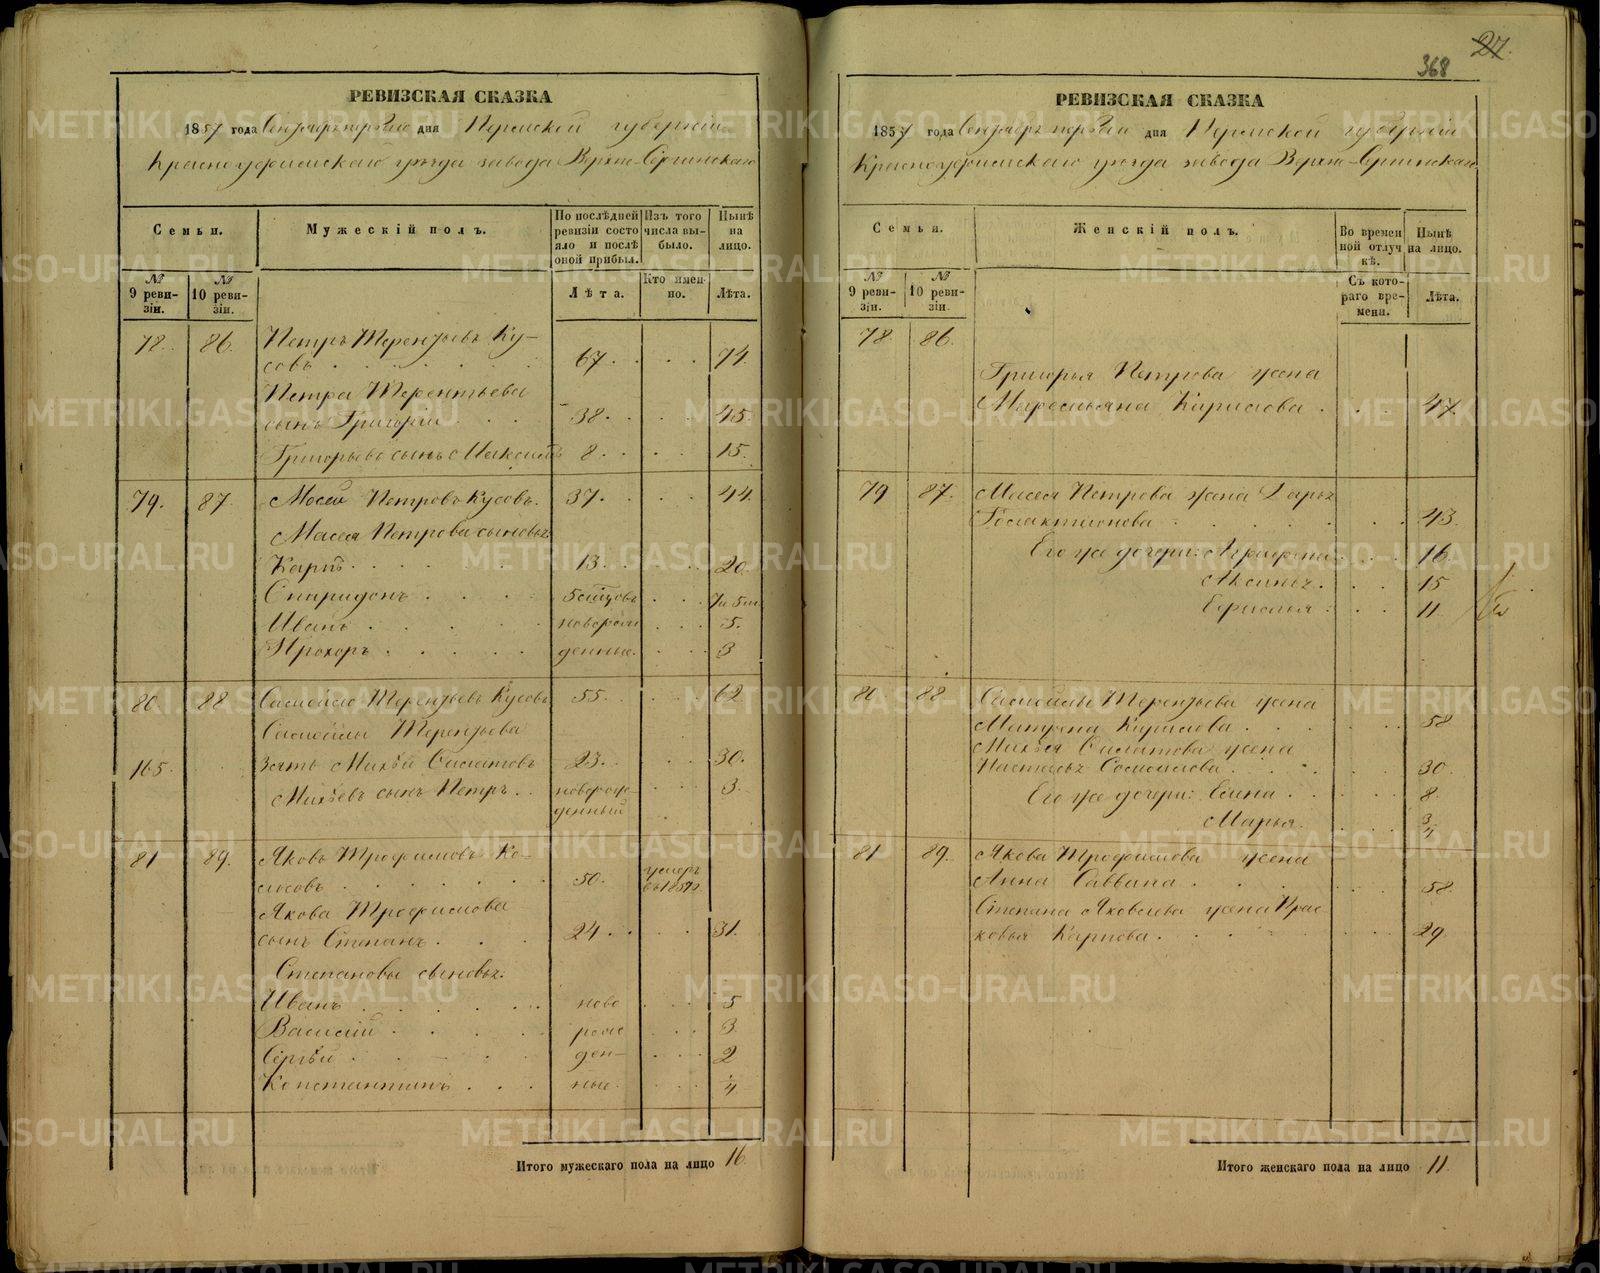 27.
368
РЕВИЗСКАЯ СКАЗКА
1857 года Сентября первого дня Пермской губернии
Красноуфимскаго уезда завода Верхне-Сергинскаго
Семьи.
Мужескій полъ.
По послѣдней ревизіи состояло и послѣ оной прибыл.
Изъ того числа выбыло.
Нынѣ на лицо.
№ 9 ревизіи.
№ 10 ревизіи.
Лѣта.
Кто именно.
Лѣта.
78. 86. Петръ Терентьевъ Ку-
совъ 67. 74.
Петра Терентьева
сынъ Григорій 38. 45.
Григорьевъ сынъ Максимъ 8. 15.
79. 87. Мосей Петровъ Кусовъ. 37. 44.
Мосея Петрова сыновья:
Карпъ 13. 20.
Спиридонъ 5 мцовъ 7 и 5 м.
Иванъ новорож 5.
Прохоръ денные. 3
80 88 Самойло Терентьевъ Кусовъ 55. 62
Самойлы Терентьева
165. зять Михѣй Филатовъ 23. 30.
Михѣевъ сынъ Петръ новорож- 3.
денный
81 89. Яковъ Трофимовъ Ко-
лосовъ 50. умеръ въ 1857г.
Якова Трофимова
сынъ Степанъ 24. 31.
Степановы сыновья:
Иванъ ново 5
Василій рож 3
Сергѣй ден- 2
Константинъ ные. 1/4
Итого мужескаго пола на лицо 16.
РЕВИЗСКАЯ СКАЗКА
1857 года Сентября первого дня Пермской губерніи
Красноуфимскаго уезда завода Верхне-Сергинскаго
Семьи.
Женскій полъ.
Во временной отлучкѣ.
Нынѣ на лицо.
№ 9 ревизіи.
№ 10 ревизіи.
Съ котораго времени.
Лѣта.
78 86.
Григорья Петрова жена
Маремьяна Карпова 47.
79 87. Мосея Петрова жена Дарья
Галактионова 43.
Его же дочери: Аграфена 16.
Аксинья. 15
Ефимья 11.
80 88 Самойлы Терентьева жена
Матрена 58
Михѣя Филатова жена
Настасья Самойлова 30.
Его же дочери: Елена 8.
Марья. 3/4
81 89. Якова Трофимова жена
Анна Саввина 58.
Степана Яковлева жена Прас-
ковья Карпова 29
Итого женскаго пола на лицо 11.
METRIKI.GASO-URAL.RU